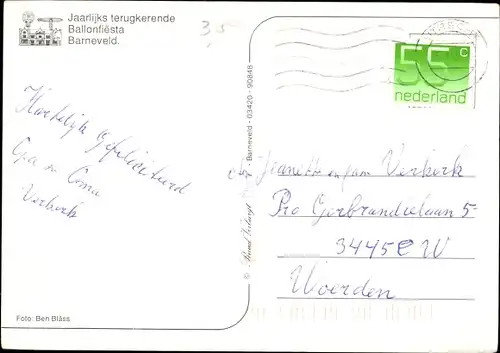 Jaarlijks terugkerende
Ballonfiësta
Barneveld.
35
55 c
nederland
Hartelijk Gefeliciteerd
Opa en Oma
Verkerk
Barneveld - 03420 - 90848
©
Jeanette en fam Verkerk
Pro Gerbrandielaan 5
3445 EW
Woerden
Foto: Ben Bläss